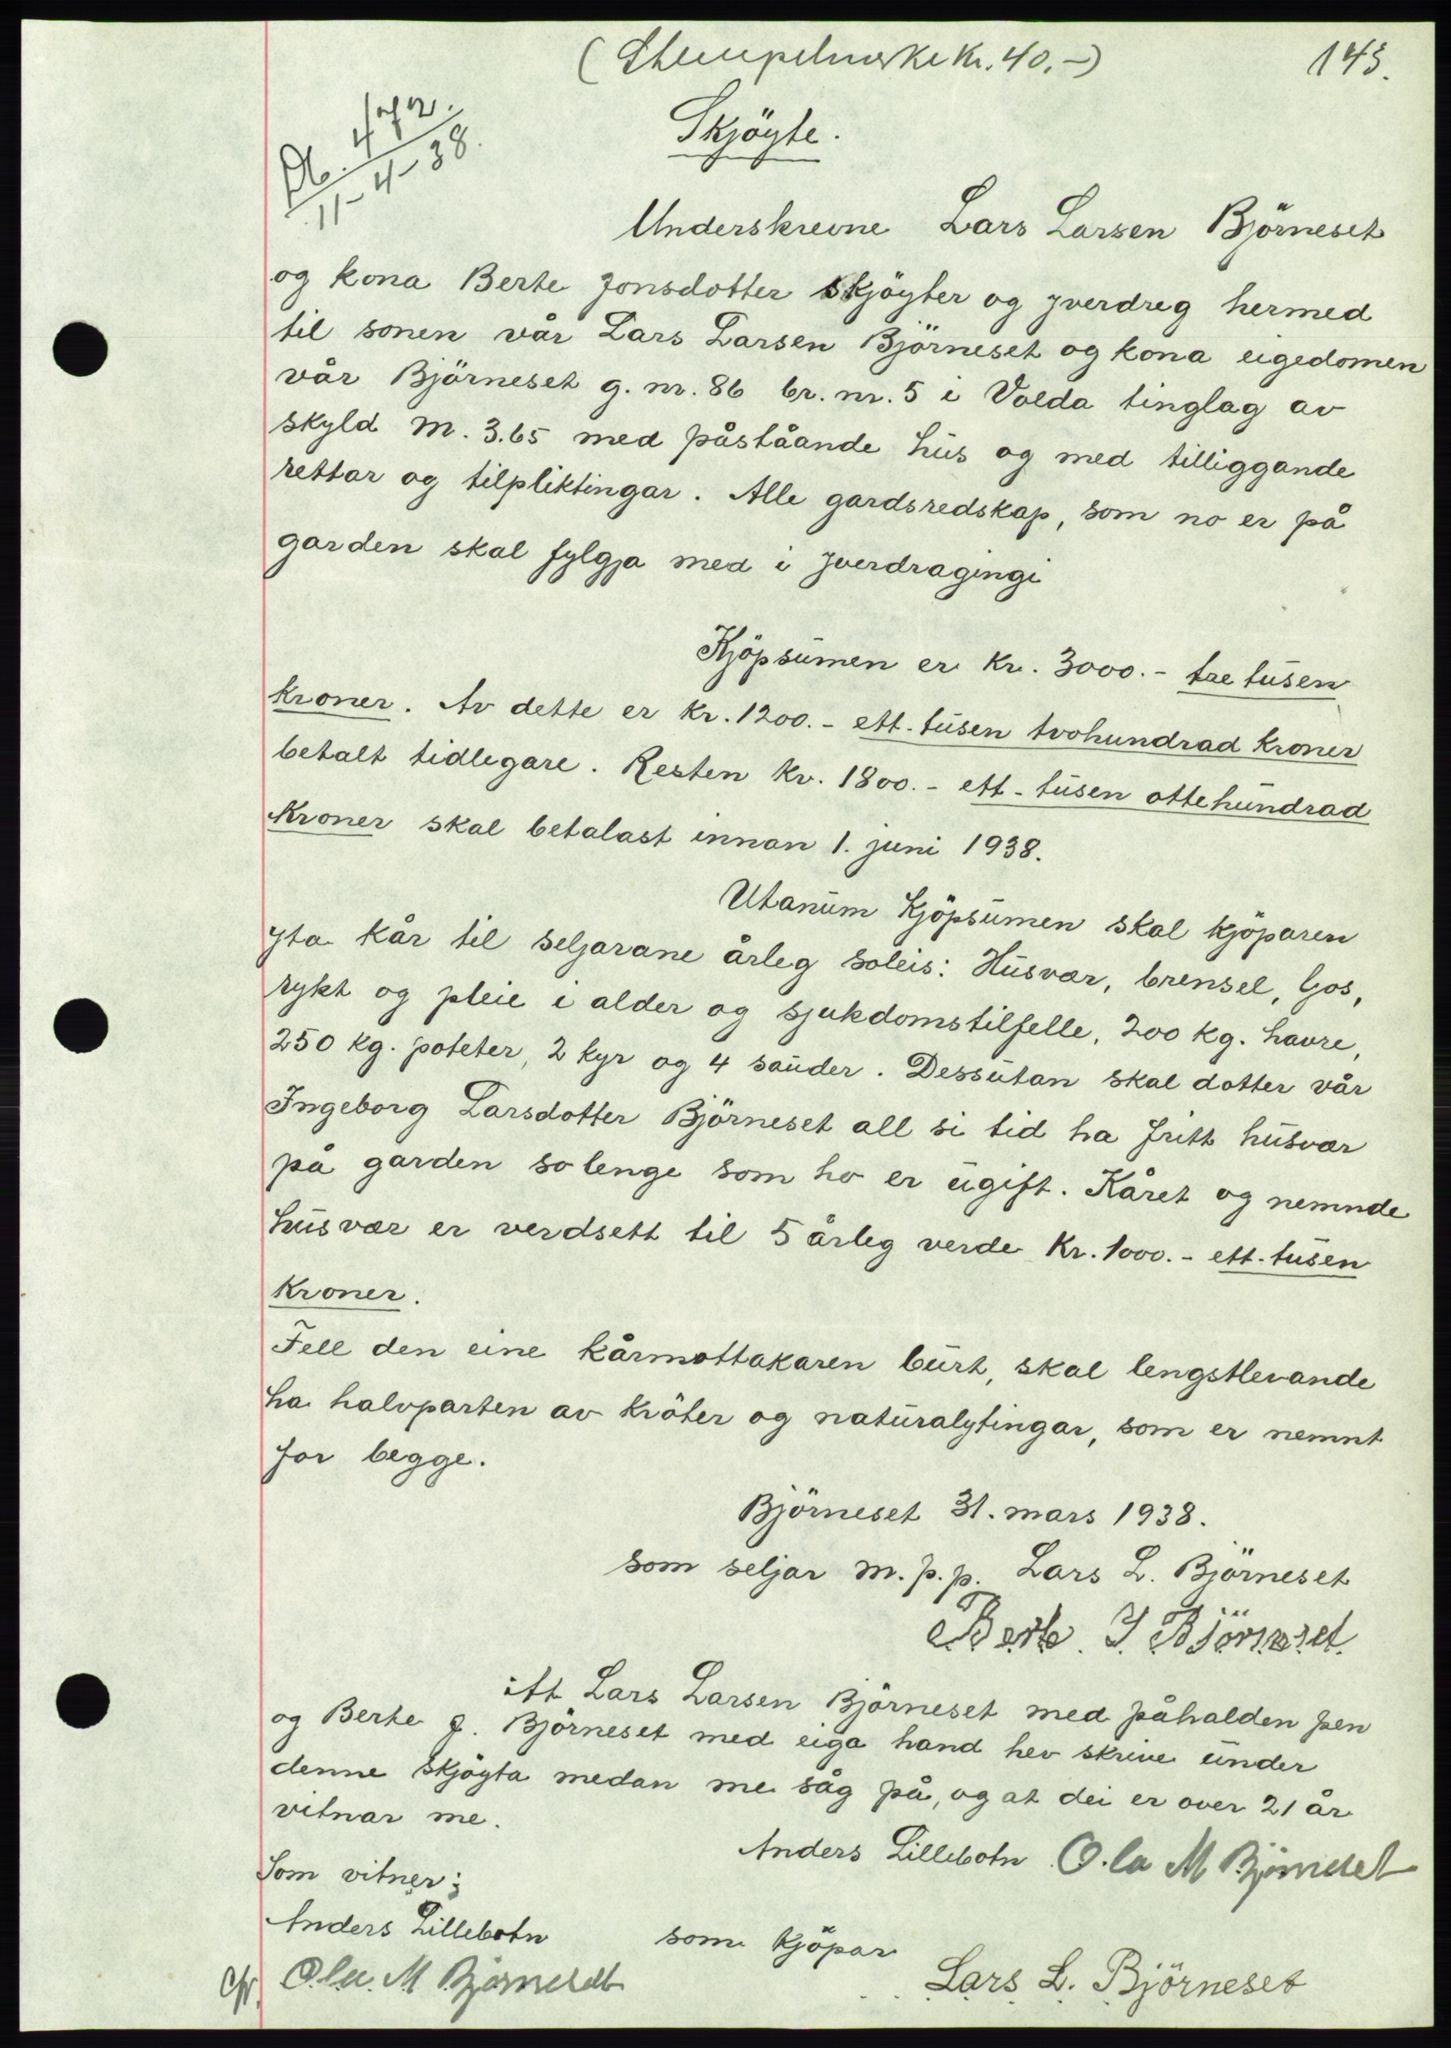 (Stempelmerke kr. 40.-)
143.
Db. 472.
11-4-38.
Skjöyte.
Underskrevne Lars Larsen Björneset
og kona Berte Jonsdotter skjöyter og yverdreg hermed
til sonen vår Lars Larsen Björneset og kona eigedomen
vår Björneset g. nr. 86 br. nr. 5 i Volda tinglag av
skyld m. 3.65 med påståande hus og med tilliggande
rettar og tilpliktingar. Alle gardsredskap, som no er på
garden skal fylgja med i yverdragingi
Kjöpsumen er kr. 3000.- tre tusen
kroner. Av dette er kr. 1200.- ett-tusen tvohundrad kroner
betalt tidlegare. Resten kr. 1800.- ett-tusen ottehundrad
kroner skal betalast innan 1. juni 1938.
Utanum kjöpsumen skal kjöparen
yta kår til seljarane årleg soleis: Husvær, brensel, ljos,
rykt og pleie i alder og sjukdomstilfelle, 200 kg. havre,
250 kg. poteter, 2 kyr og 4 sauder. Dessutan skal dotter vår
Ingeborg Larsdotter Björneset all si tid ha fritt husvær
på garden so lenge som ho er ugift. Kåret og nemnde
husvær er verdsett til 5 årleg verde kr. 1000.- ett-tusen
kroner.
Fell den eine kårmottakaren burt, skal lengstlevande
ha halvparten av kröter og naturalytingar, som er nemnt
for begge.
Björneset 31. mars 1938.
som seljar m.p.p. Lars L. Björneset
Berte J Björneset
Att Lars Larsen Björneset med påhalden pen
og Berte J. Björneset med eiga hand hev skrive under
denne skjöyta medan me såg på, og at dei er over 21 år
vitnar me.
Anders Lillebotn Ola M Björneset
Som vitner:
Anders Lillebotn
som kjöpar
Ola M Björneset
Lars L. Björneset